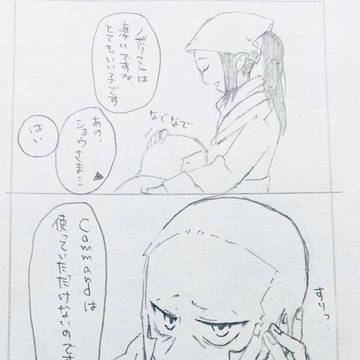 ノボリさんは
凄いですね
とてもいい子です
なでなで
あの、
ショウさま…
はい
Commandは
使っていただけないのです
すりっ…